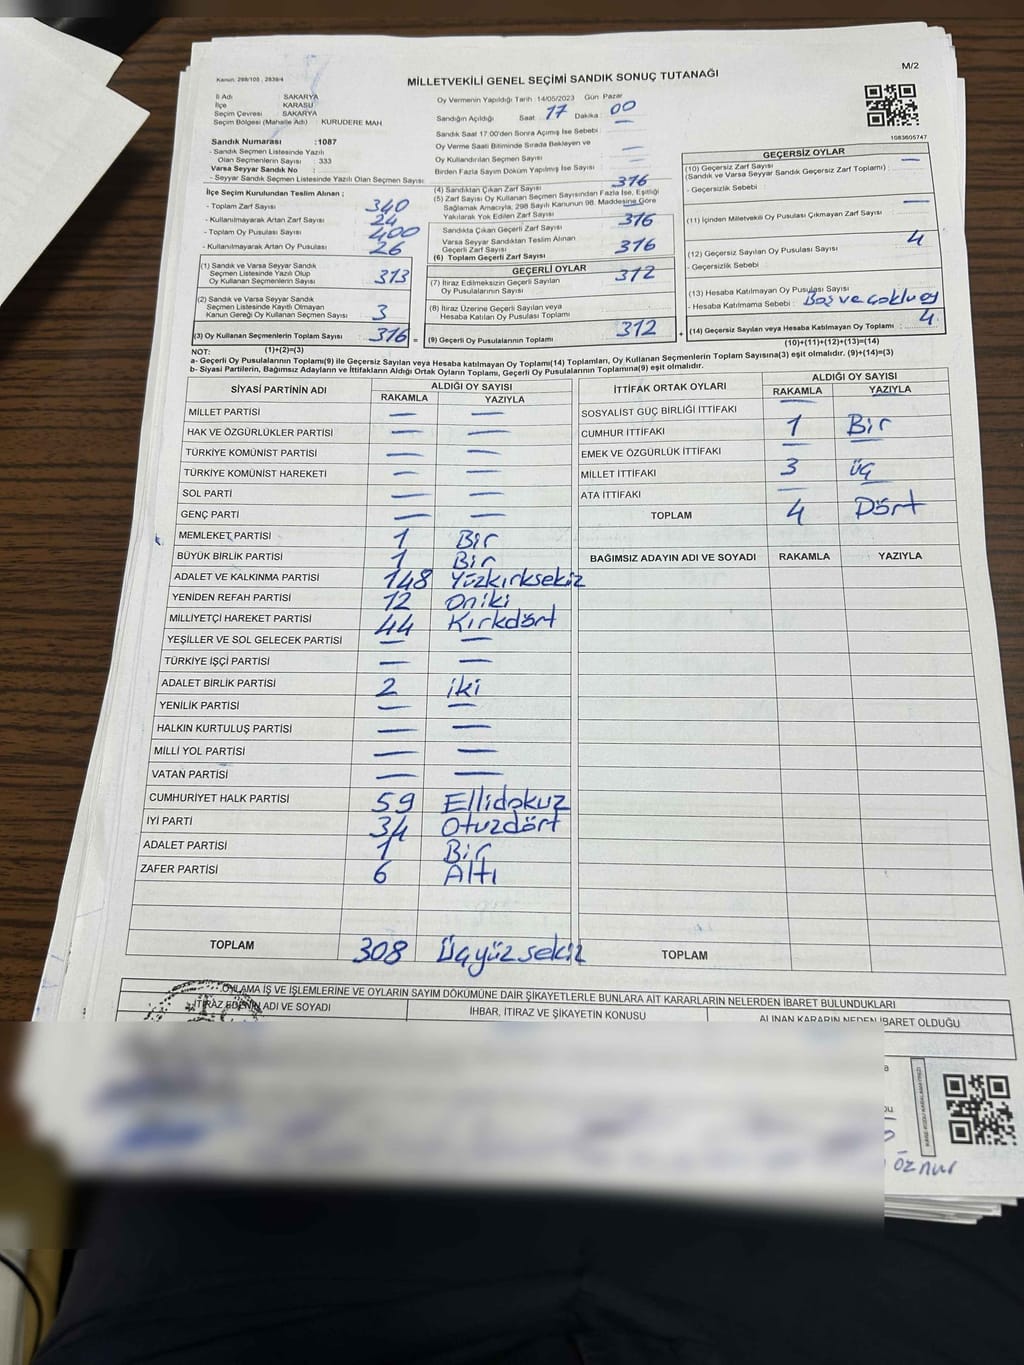 M/2
Kanun: 298/105 , 2839/4
MİLLETVEKİLİ GENEL SEÇİMİ SANDIK SONUÇ TUTANAĞI
İl Adı SAKARYA
İlçe KARASU
Seçim Çevresi SAKARYA
Seçim Bölgesi (Mahalle Adı) : KURUDERE MAH.
Sandık Numarası :1087
- Sandık Seçmen Listesinde Yazılı
Olan Seçmenlerin Sayısı : 333
Varsa Seyyar Sandık No :
- Seyyar Sandık Seçmen Listesinde Yazılı Olan Seçmen Sayısı
Oy Vermenin Yapıldığı Tarih :14/05/2023 Gün Pazar
Sandığın Açıldığı Saat 17 Dakika 00
Sandık Saat 17:00'den Sonra Açılmış İse Sebebi :
Oy Verme Saati Bitiminde Sırada Bekleyen ve
Oy Kullandırılan Seçmen Sayısı : —
Birden Fazla Sayım Döküm Yapılmış İse Sayısı —
1083605747
İlçe Seçim Kurulundan Teslim Alınan ;
- Toplam Zarf Sayısı 340
- Kullanılmayarak Artan Zarf Sayısı 24
- Toplam Oy Pusulası Sayısı 400
- Kullanılmayarak Artan Oy Pusulası 26
(1) Sandık ve Varsa Seyyar Sandık
Seçmen Listesinde Yazılı Olup
Oy Kullanan Seçmenlerin Sayısı 313
(2) Sandık ve Varsa Seyyar Sandık
Seçmen Listesinde Kayıtlı Olmayan
Kanun Gereği Oy Kullanan Seçmen Sayısı 3
(3) Oy Kullanan Seçmenlerin Toplam Sayısı 316 =
(1)+(2)=(3)
(4) Sandıktan Çıkan Zarf Sayısı 316
(5) Zarf Sayısı Oy Kullanan Seçmen Sayısından Fazla İse, Eşitliği
Sağlamak Amacıyla, 298 Sayılı Kanunun 98. Maddesine Göre
Yakılarak Yok Edilen Zarf Sayısı —
Sandıkta Çıkan Geçerli Zarf Sayısı 316
Varsa Seyyar Sandıktan Teslim Alınan
Geçerli Zarf Sayısı
(6) Toplam Geçerli Zarf Sayısı 316
GEÇERLİ OYLAR
(7) İtiraz Edilmeksizin Geçerli Sayılan
Oy Pusulalarının Sayısı 312
(8) İtiraz Üzerine Geçerli Sayılan veya
Hesaba Katılan Oy Pusulası Toplamı
(9) Geçerli Oy Pusulalarının Toplamı 312 +
GEÇERSİZ OYLAR
(10) Geçersiz Zarf Sayısı
(Sandık ve Varsa Seyyar Sandık Geçersiz Zarf Toplamı) : —
- Geçersizlik Sebebi :
(11) İçinden Milletvekili Oy Pusulası Çıkmayan Zarf Sayısı —
(12) Geçersiz Sayılan Oy Pusulası Sayısı 4
- Geçersizlik Sebebi :
(13) Hesaba Katılmayan Oy Pusulası Sayısı
- Hesaba Katılmama Sebebi : Boş ve çoklu oy
(14) Geçersiz Sayılan veya Hesaba Katılmayan Oy Toplamı : 4
(10)+(11)+(12)+(13)=(14)
NOT:
a- Geçerli Oy Pusulalarının Toplamı(9) ile Geçersiz Sayılan veya Hesaba katılmayan Oy Toplamı(14) Toplamları, Oy Kullanan Seçmenlerin Toplam Sayısına(3) eşit olmalıdır. (9)+(14)=(3)
b- Siyasi Partilerin, Bağımsız Adayların ve İttifakların Aldığı Ortak Oyların Toplamı, Geçerli Oy Pusulalarının Toplamına(9) eşit olmalıdır.
SİYASİ PARTİNİN ADI ALDIĞI OY SAYISI
RAKAMLA YAZIYLA
MİLLET PARTİSİ — —
HAK VE ÖZGÜRLÜKLER PARTİSİ — —
TÜRKİYE KOMÜNİST PARTİSİ — —
TÜRKİYE KOMÜNİST HAREKETİ — —
SOL PARTİ — —
GENÇ PARTİ — —
MEMLEKET PARTİSİ 1 Bir
BÜYÜK BİRLİK PARTİSİ 1 Bir
ADALET VE KALKINMA PARTİSİ 148 Yüzkırksekiz
YENİDEN REFAH PARTİSİ 12 Oniki
MİLLİYETÇİ HAREKET PARTİSİ 44 Kırkdört
YEŞİLLER VE SOL GELECEK PARTİSİ — —
TÜRKİYE İŞÇİ PARTİSİ — —
ADALET BİRLİK PARTİSİ 2 iki
YENİLİK PARTİSİ — —
HALKIN KURTULUŞ PARTİSİ — —
MİLLİ YOL PARTİSİ — —
VATAN PARTİSİ — —
CUMHURİYET HALK PARTİSİ 59 Ellidokuz
İYİ PARTİ 34 Otuzdört
ADALET PARTİSİ 1 Bir
ZAFER PARTİSİ 6 Altı
TOPLAM 308 Üçyüzsekiz
İTTİFAK ORTAK OYLARI ALDIĞI OY SAYISI
RAKAMLA YAZIYLA
SOSYALİST GÜÇ BİRLİĞİ İTTİFAKI — —
CUMHUR İTTİFAKI 1 Bir
EMEK VE ÖZGÜRLÜK İTTİFAKI — —
MİLLET İTTİFAKI 3 üç
ATA İTTİFAKI — —
TOPLAM 4 Dört
BAĞIMSIZ ADAYIN ADI VE SOYADI RAKAMLA YAZIYLA
TOPLAM
OYLAMA İŞ VE İŞLEMLERİNE VE OYLARIN SAYIM DÖKÜMÜNE DAİR ŞİKAYETLERLE BUNLARA AİT KARARLARIN NELERDEN İBARET BULUNDUKLARI
İTİRAZ EDENİN ADI VE SOYADI İHBAR, İTİRAZ VE ŞİKAYETİN KONUSU ALINAN KARARIN NEDEN İBARET OLDUĞU
öznur